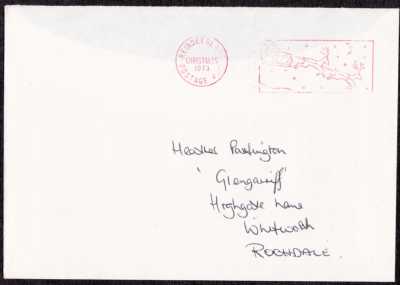 REINDEERLAND
CHRISTMAS
1973
POSTAGE
Heather Partington
'Glengarriff'
Highgate Lane
Whitworth
ROCHDALE.